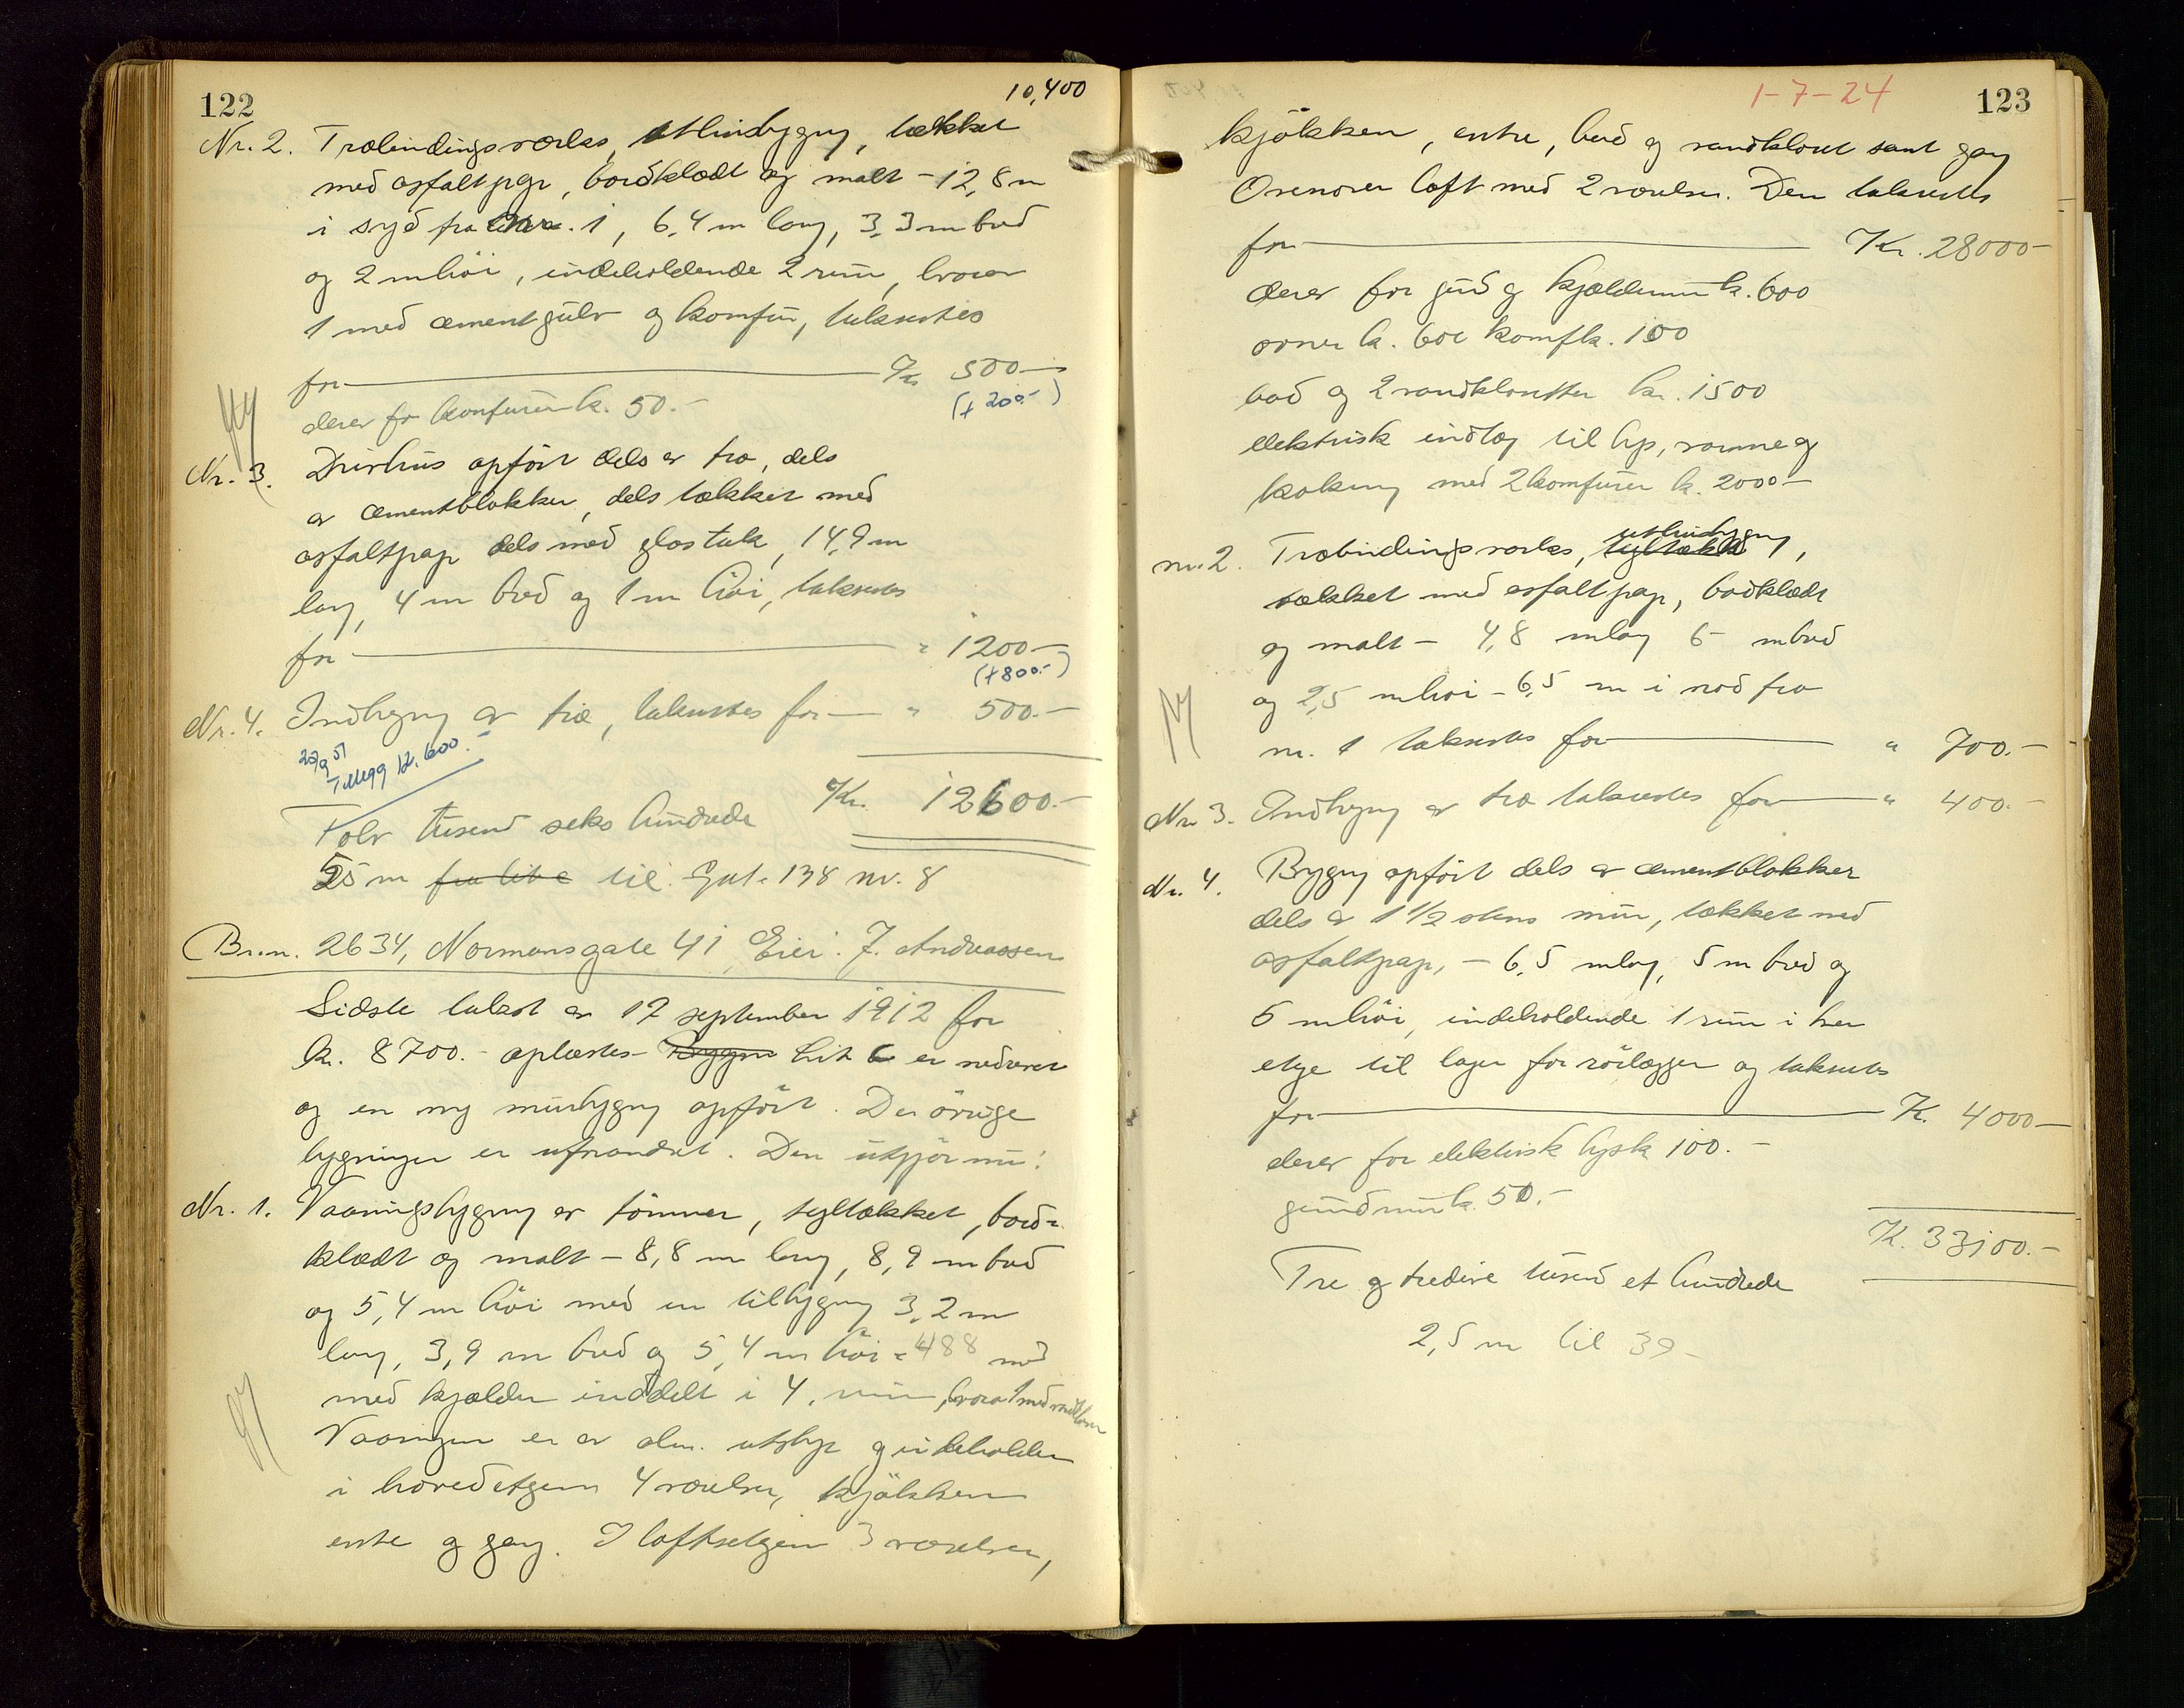 122
10,400
Nr. 2. Træbindingsværks, uthusbygng, tækket
med asfaltpap, bordklædt og malt - 12,8 m
i syd fra nr. 1, 6,4 m lang, 3,3 m bred
og 2 m höi, indeholdende 2 rum, hvorav
1 med cementgulv og komfur, takseres
for Kr. 500.-
(+ 200.-)
derav for komfuren kr. 50.-
Nr. 3. Drivhus opfört dels av træ, dels
av cementblokker, dels tækket med
asfaltpap dels med glastak, 14,9 m
lang, 4 m bred og 1 m höi, takseres
for " 1200.-
(+800.-)
Nr. 4. Indhegng av træ, takseres for " 500.-
29/9 51
Tillegg 12.600.-
Kr. 12600.-
Tolv tusend seks hundrede
55 m fra lit c til Gnt. 138 nr. 8
Br.n. 2634, Normansgate 41, Eier: J. Andreassen
Sidste takst av 17 september 1912 for
kr. 8700.- oplæstes. Bygn lit C er nedrevet
og en ny murbygng opfört. De övrige
bygninger er uforandret. Den utgjör nu:
Nr. 1. Vaaningsbygng av tömmer, tegltækket, bord=
klædt og malt - 8,8 m lang, 8,9 m bred
og 5,4 m höi med en tilbygng 3,2 m
lang, 3,9 m bred og 5,4 m höi = 488 m3
med kjælder inddelt i 4 rum, hvorav 1 med vandkloset
Vaaningen er av alm. utstyr og indeholder
i hovedetagen 4 værelser, kjökken
entre og gang. I loftsetagen 3 værelser,
1-7-24
123
kjökken, entre, bad og vandkloset samt gang
Ovenover loft med 2 værelser. Den takseres
for Kr. 28000.-
derav for grund og kjældermur k. 600
ovner k. 600 komf k. 100
bad og 2 vandklosetter kr. 1500
elektrisk indlæg til lys, varme og
koking med 2 komfurer k. 2000.-
nr. 2. Træbindingsværks, tegltækket uthusbygng,
tækket med asfaltpap, bordklædt
og malt - 4,8 m lang 6 m bred
og 2,5 m höi - 6,5 m i nord fra
nr. 1 takseres for " 700.-
Nr. 3. Indhegng av træ takseres for " 400.-
Nr. 4. Bygng opfört dels av cementblokker
dels av 1 1/2 stens mur, tækket med
asfaltpap, - 6,5 m lang, 5 m bred og
5 m höi, indeholdende 1 rum i hver
etage til lager for rörlægger og takseres
for K. 4000.-
derav for elektrisk lys k. 100.-
grundmur k. 50.-
K. 33100.-
Tre og tredive tusend et hundrede
2,5 m til 39